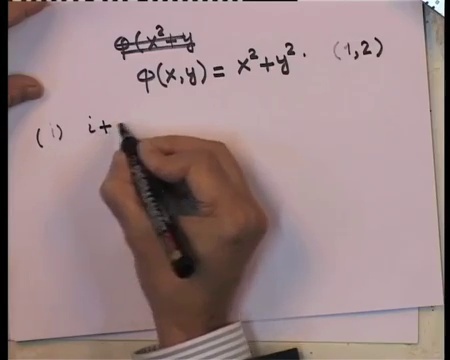 φ(x²+y
φ(x,y) = x²+y². (1,2)
(i) i+